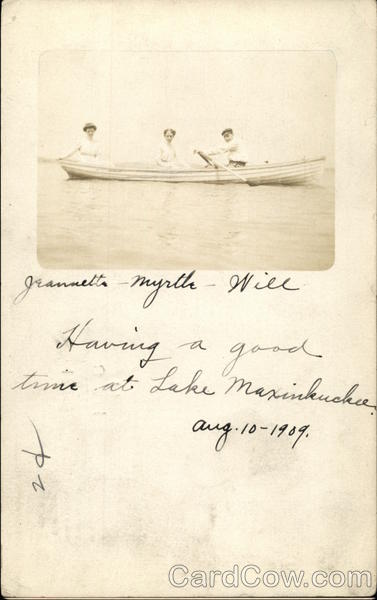 Jeannette - Myrtle - Will
Having a good
time at Lake Maxinkuckee.
Aug. 10 - 1909.
CardCow.com